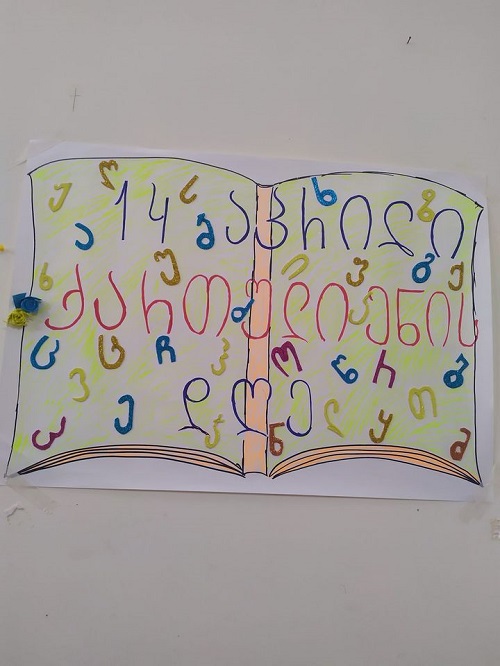 14 აპრილი
ქართული ენის
დღე